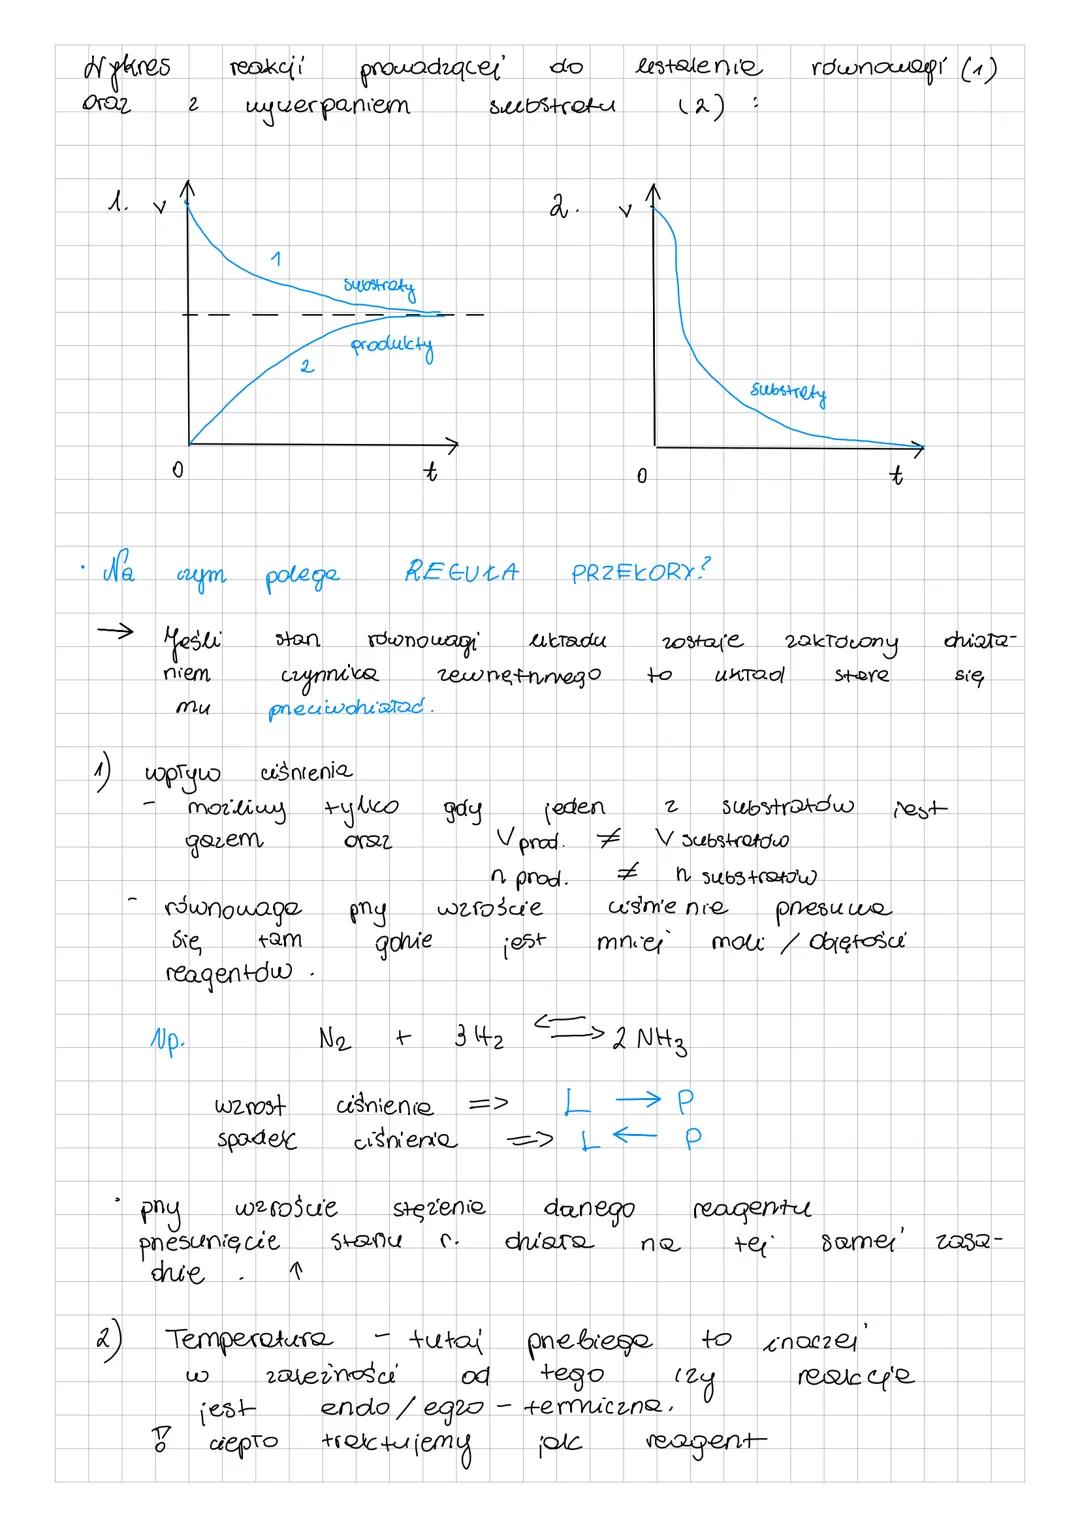 Wykres reakcji prowadzącej do ustalenia równowagi (1)
oraz z wyczerpaniem substratu (2) :
1. v
2. v
1
substraty
produkty
2
substraty
0 t
0 t
· Na czym polega REGUŁA PRZEKORY?
→ Jeśli stan równowagi układu zostaje zakłócony działa-
niem czynnika zewnętrznego to układ stara się
mu przeciwdziałać.
1) wpływ ciśnienia
- możliwy tylko gdy jeden z substratów jest
gazem oraz V prod. ≠ V substratów
n prod. ≠ n substratów
- równowaga przy wzroście ciśnienia przesuwa
się tam gdzie jest mniej moli / objętości
reagentów .
Np. N2 + 3 H2 ⇆ 2 NH3
wzrost ciśnienia => L → P
spadek ciśnienia => L ← P
· przy wzroście stężenia danego reagentu
przesunięcie stanu r. działa na tej samej zasa-
dzie . ↑
2) Temperatura - tutaj przebiega to inaczej
w zależności od tego czy reakcja
jest endo / egzo - termiczna.
ciepło traktujemy jak reagent